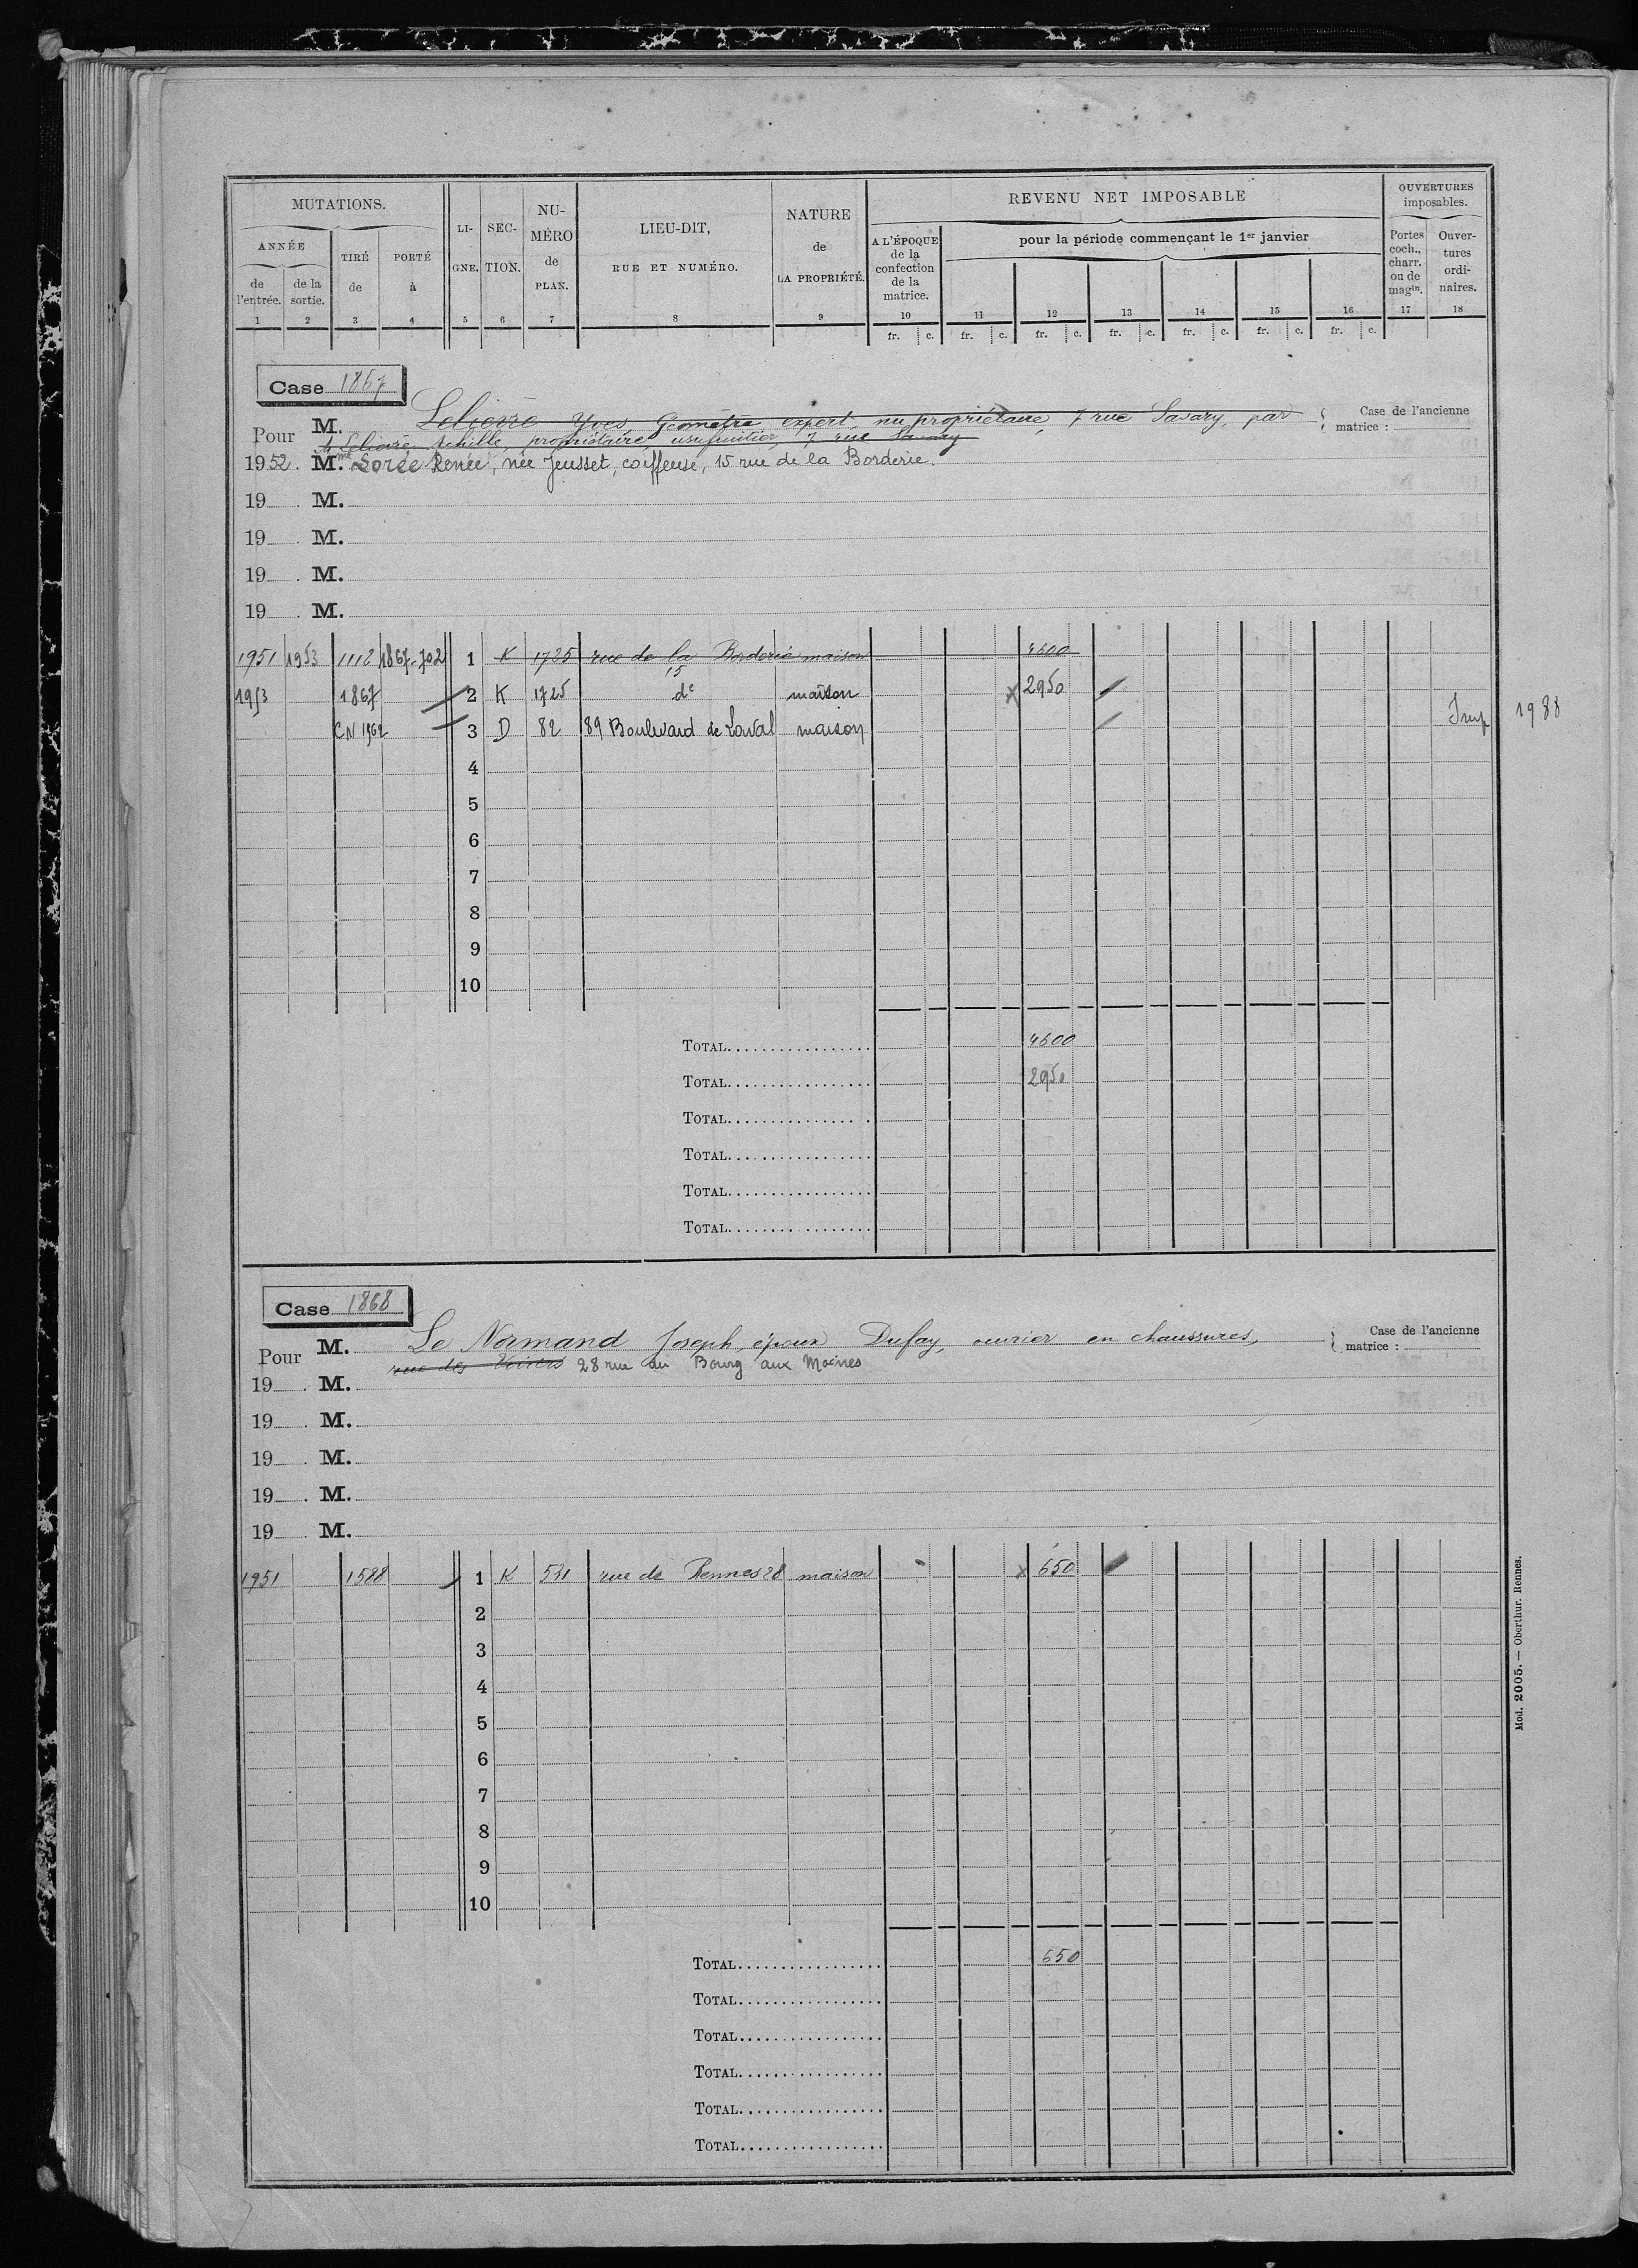 MUTATIONS. LI- SEC- NU- LIEU-DIT, NATURE REVENU NET IMPOSABLE OUVERTURES
imposables.
ANNÉE TIRÉ PORTÉ GNE. TION. MÉRO RUE ET NUMÉRO. de A L'ÉPOQUE pour la période commençant le 1er janvier Portes Ouver-
de de la de à de LA PROPRIÉTÉ. de la coch., tures
l'entrée. sortie. PLAN. confection charr. ordi-
de la ou de naires.
matrice. magin.
1 2 3 4 5 6 7 8 9 10 11 12 13 14 15 16 17 18
fr. c. fr. c. fr. c. fr. c. fr. c. fr. c. fr. c.
Case 1867
Pour M. Lelièvre Yves, Géomètre expert, nu propriétaire, 7 rue Savary, par Case de l'ancienne
matrice :
M Lelièvre Achille, propriétaire usufruitier, 7 rue Savary
1952. M.me Sorée Renée, née Jeusset, coiffeuse, 15 rue de la Borderie.
19 . M.
19 . M.
19 . M.
19 . M.
1951 1953 1112 1867-702 1 K 1725 rue de la Borderie maison 4600
15
1953 1867 2 K 1725 de maison x 2950
CN 1962 3 D 82 89 Boulevard de Laval maison Imp 1988
4
5
6
7
8
9
10
TOTAL 4600
TOTAL 2950
TOTAL
TOTAL
TOTAL
TOTAL
Case 1868
Pour M. Le Normand Joseph, époux Dufay, ouvrier en chaussures, Case de l'ancienne
matrice :
rue des 28 rue du Bourg aux Moines
19 . M.
19 . M.
19 . M.
19 . M.
19 . M.
1951 1588 1 K 531 rue de Rennes 28 maison x 650
2
3
4
5
6
7
8
9
10
TOTAL 650
TOTAL
TOTAL
TOTAL
TOTAL
TOTAL
Mod. 2005. — Oberthur. Rennes.